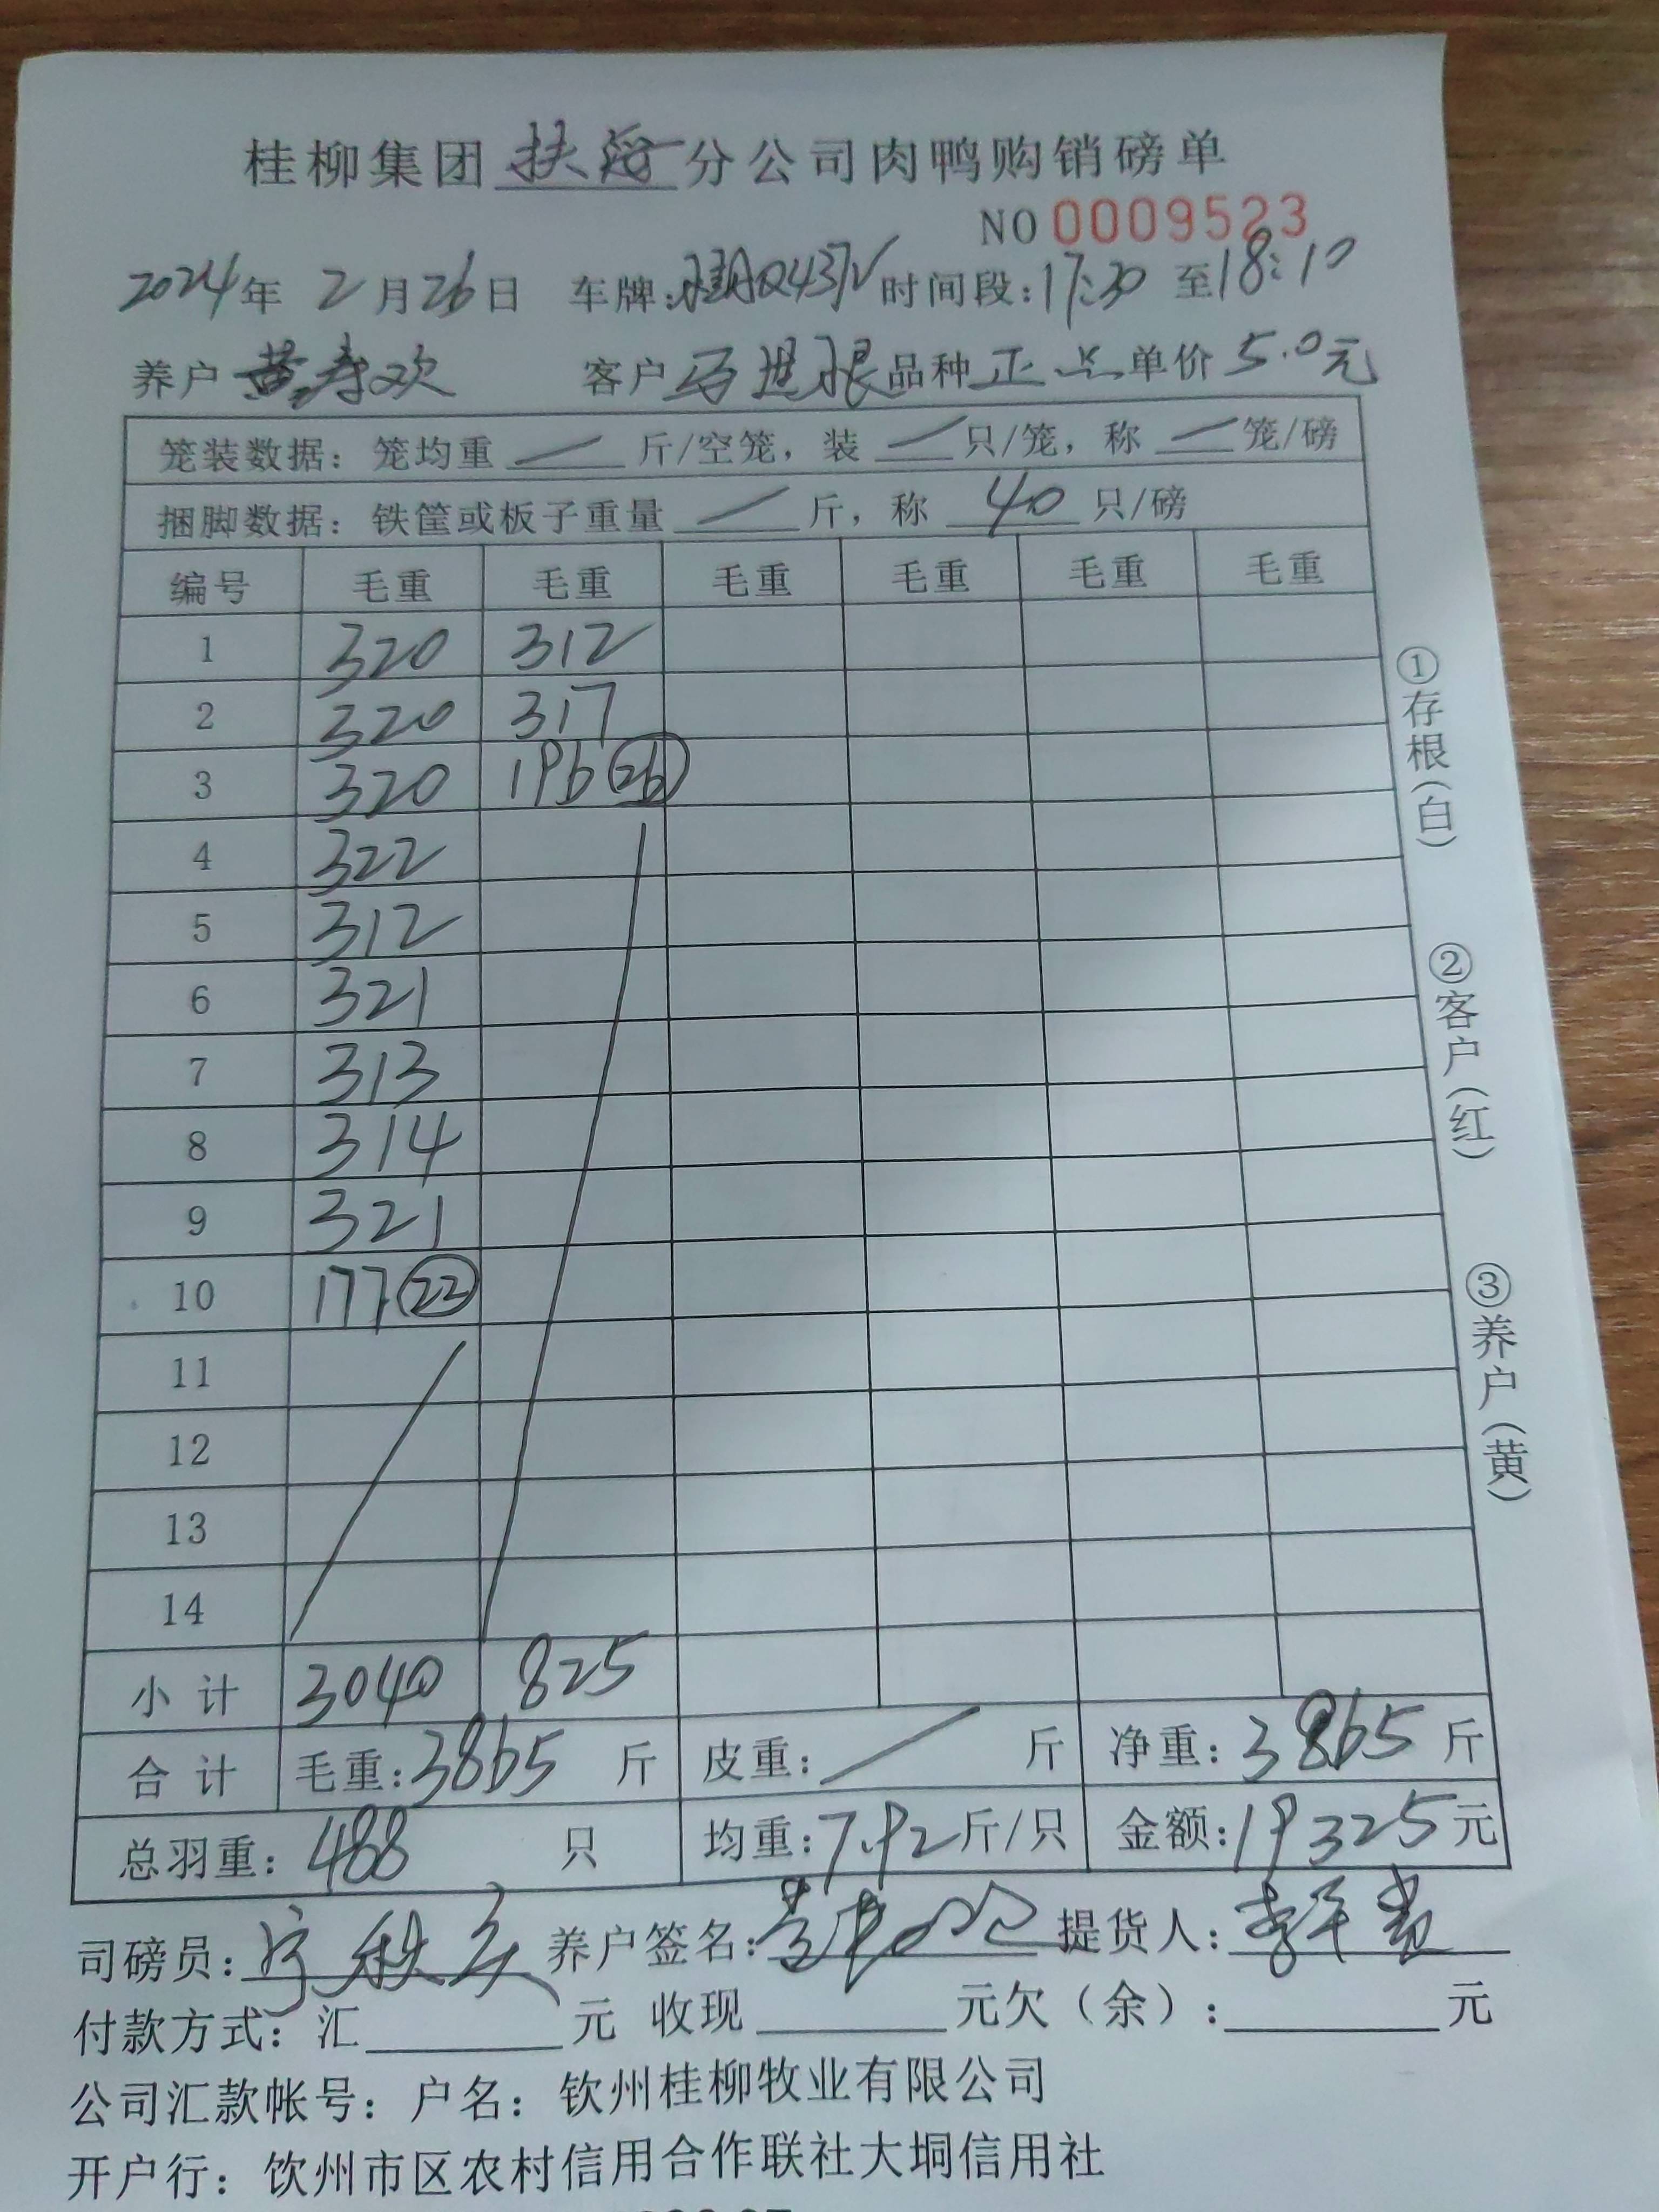 桂柳集团 扶 分公司肉鸭购销磅单
NO 0009523
2024年 2月26日 车牌: 时间段:17:30 至18:10
养户 黄寿欢 客户 石 根 品种 正 单价 5.0元
笼装数据: 笼均重 — 斤/空笼, 装 — 只/笼, 称 — 笼/磅
捆脚数据: 铁筐或板子重量 — 斤, 称 40 只/磅
编号 毛重 毛重 毛重 毛重 毛重 毛重
1 320 312
2 320 317
3 320 196 26
4 322
5 312
6 321
7 313
8 314
9 321
10 177 22
11
12
13
14
小计 3040 825
合计 毛重:3865 斤 皮重: / 斤 净重:3865 斤
总羽重: 488 只 均重:7.92斤/只 金额:19325元
司磅员: 宁秋 养户签名: 提货人: 李
付款方式: 汇 元 收现 元欠(余): 元
公司汇款帐号: 户名: 钦州桂柳牧业有限公司
开户行: 饮州市区农村信用合作联社大垌信用社
①存根(白)
②客户(红)
③养户(黄)